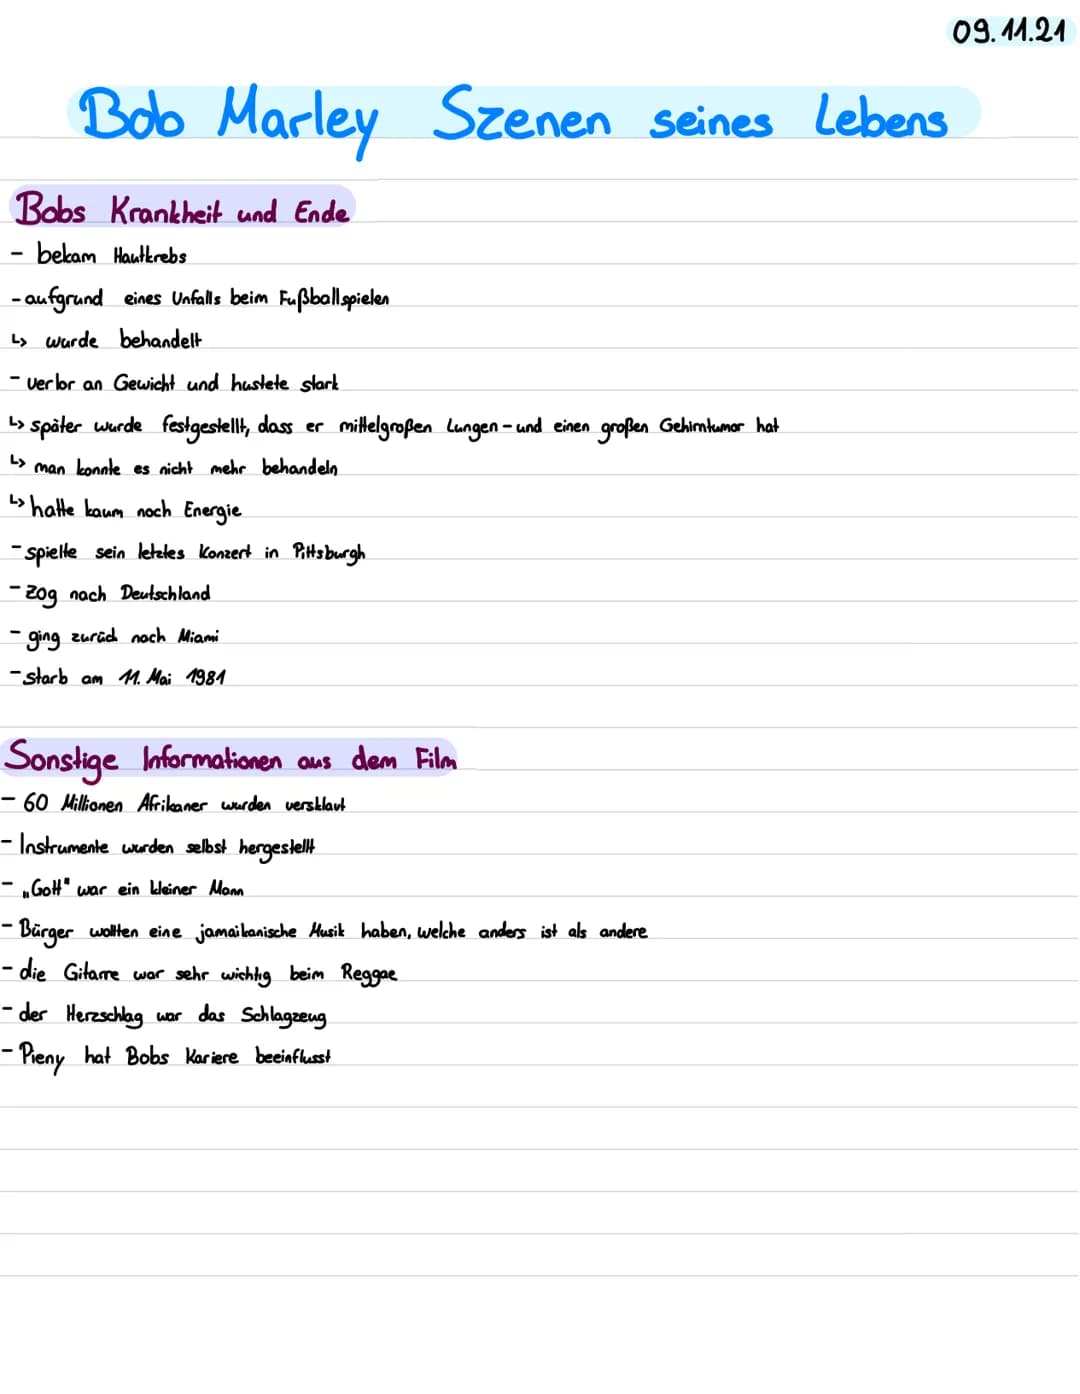 09.11.21
Bob Marley Szenen seines Lebens
Bobs Krankheit und Ende
- bekam Hautkrebs
- aufgrund eines Unfalls beim Fußballspielen
↳ wurde behandelt
- verlor an Gewicht und hustete stark
↳ später wurde festgestellt, dass er mittelgroßen Lungen- und einen großen Gehirntumor hat
↳ man konnte es nicht mehr behandeln
↳ hatte kaum noch Energie
- spielte sein letztes Konzert in Pittsburgh
- zog nach Deutschland
- ging zurück nach Miami
- starb am 11. Mai 1981
Sonstige Informationen aus dem Film
- 60 Millionen Afrikaner wurden versklavt
- Instrumente wurden selbst hergestellt
- „Gott" war ein kleiner Mann
- Bürger wollten eine jamaikanische Musik haben, welche anders ist als andere
- die Gitarre war sehr wichtig beim Reggae
- der Herzschlag war das Schlagzeug
- Pieny hat Bobs Kariere beeinflusst